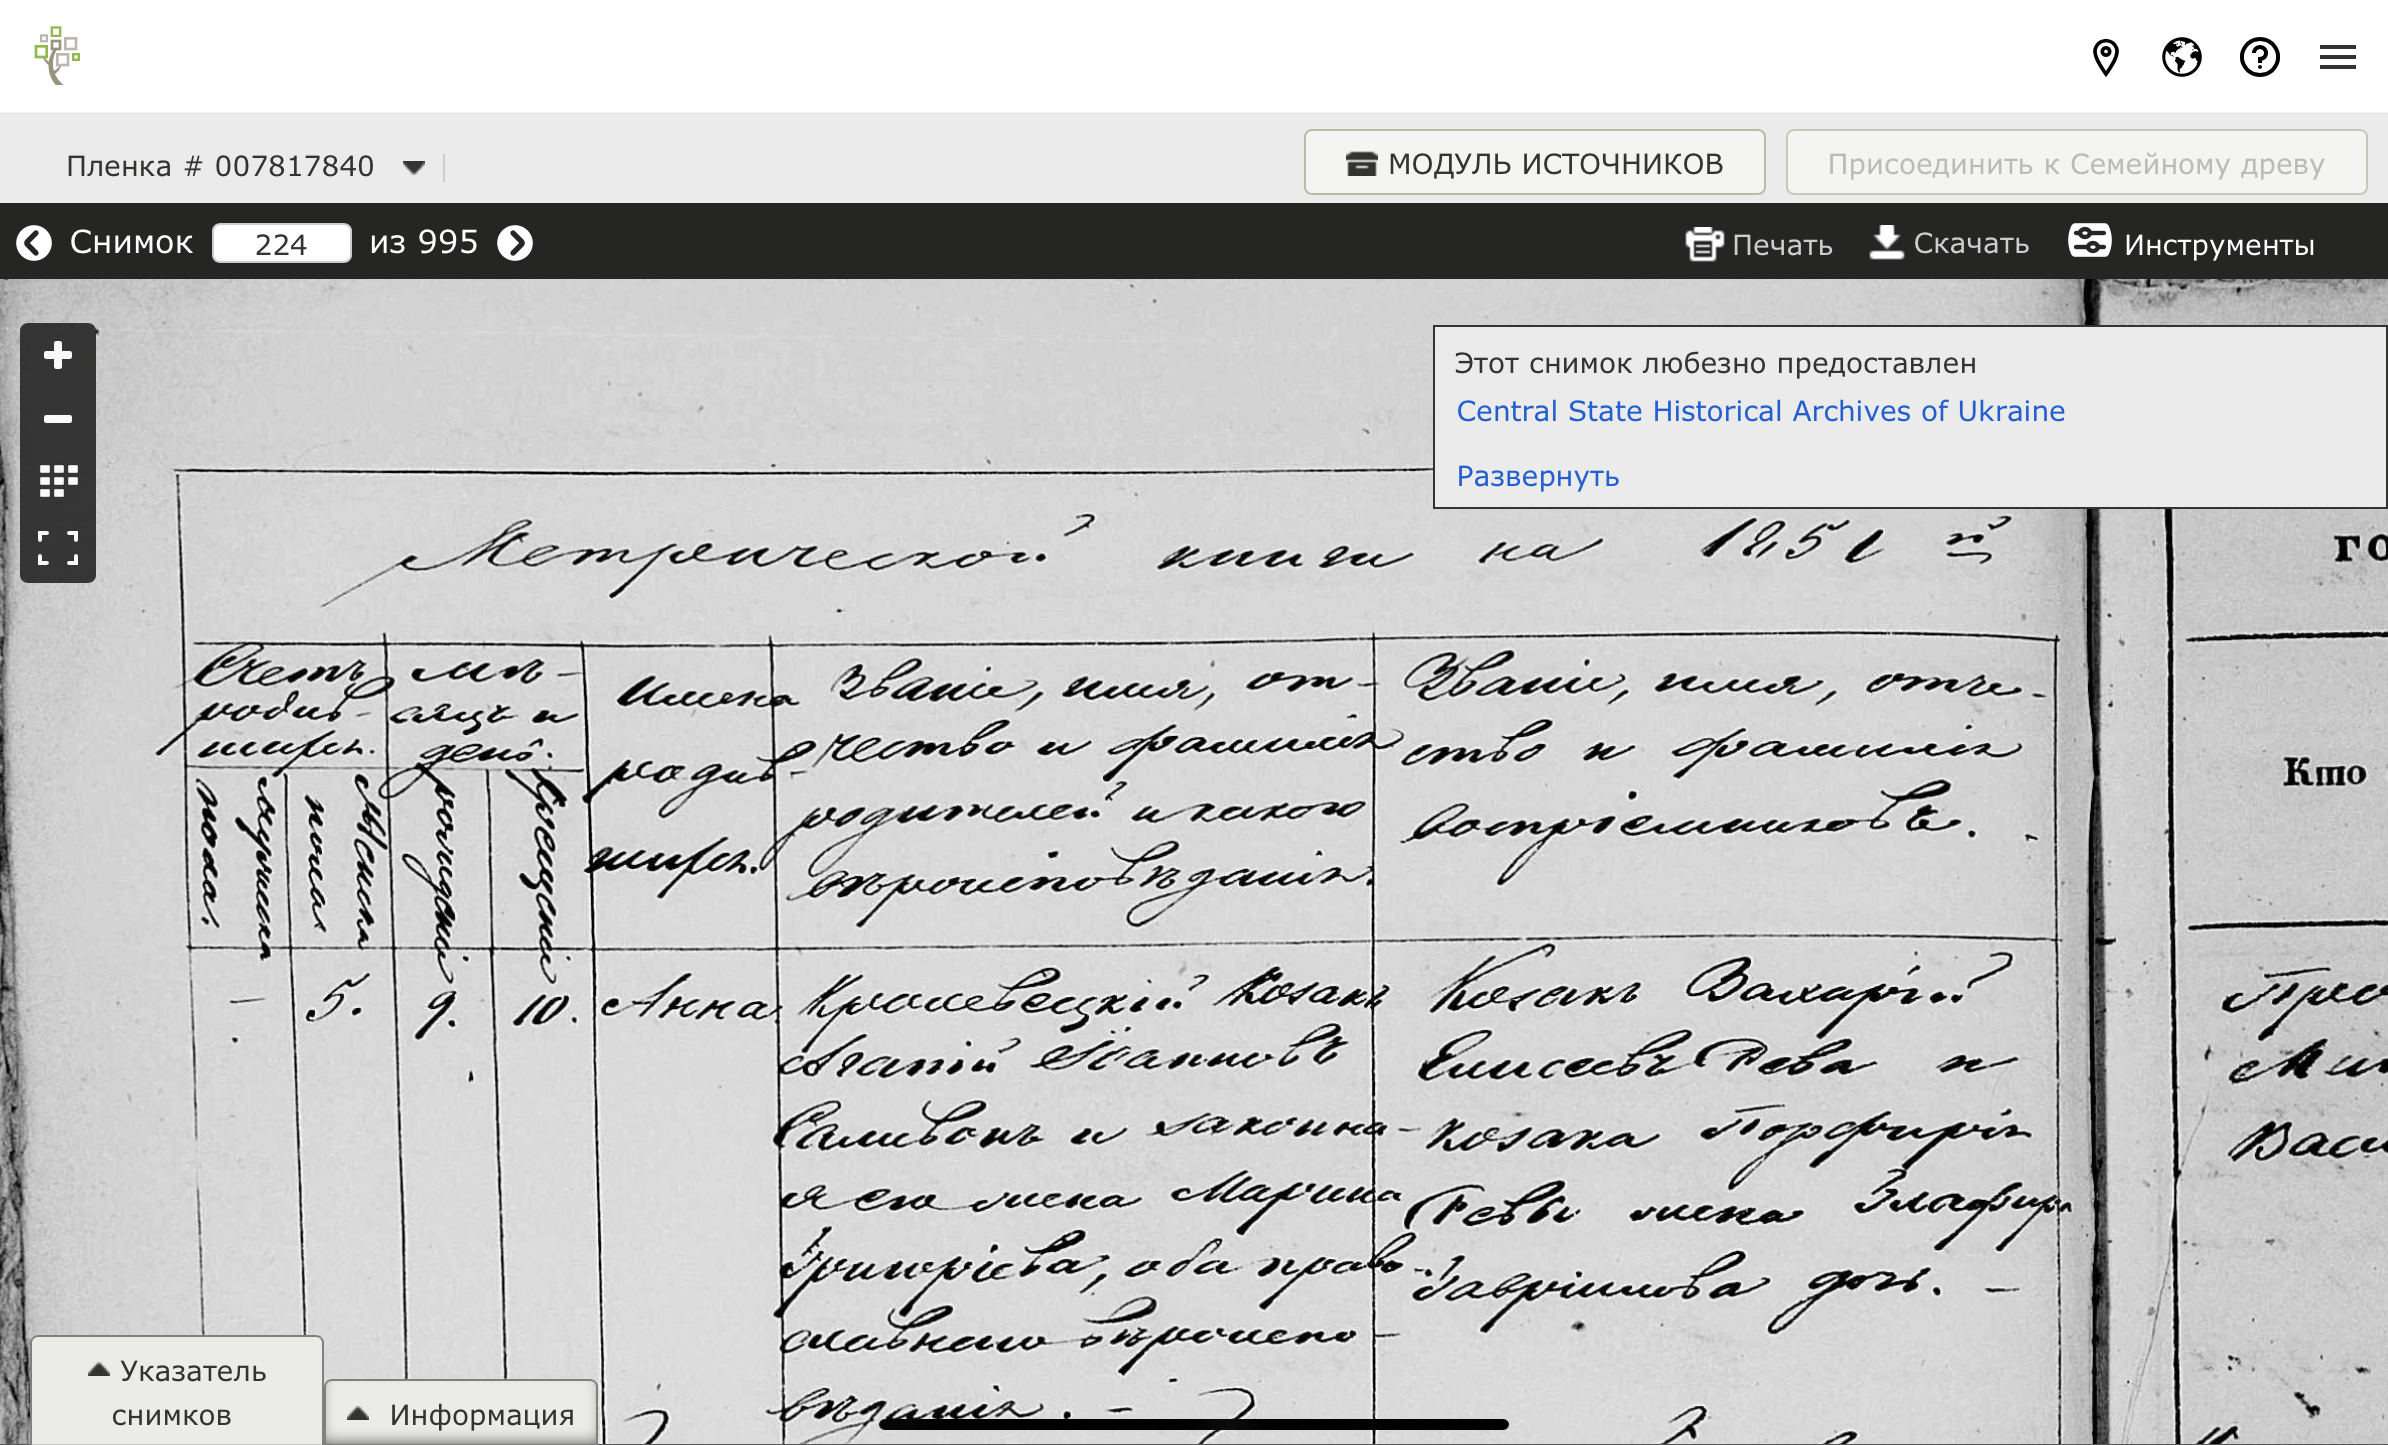 Пленка # 007817840
МОДУЛЬ ИСТОЧНИКОВ
Присоединить к Семейному древу
Снимок 224 из 995
Печать
Скачать
Инструменты
Этот снимок любезно предоставлен
Central State Historical Archives of Ukraine
Развернуть
Метрической книги на 1851 й
Счетъ
родив-
шихся.
мѣ-
сяцъ и
день.
Мужеска
пола.
Женска
пола
рожденія
Крещенія
Имена
родив-
шихся.
Званіе, имя, от-
чество и фамилія
родителей и какого
вѣроисповѣданія.
Званіе, имя, отче-
ство и фамилія
воспріемниковъ.
— 5. 9. 10. Анна.
Кролевецкій Козакъ
Агапій Іоанновъ
Саливонъ и законна-
я его жена Марина
Григорієва, оба право-
славнаго вѣроиспо-
вѣданія. —
Козакъ Захарій
Елисеевъ Рева и
козака Порфирія
Ревы жена Глафира
Гавріилова дочь. —
го
Кто
Васи
Указатель
снимков
Информация